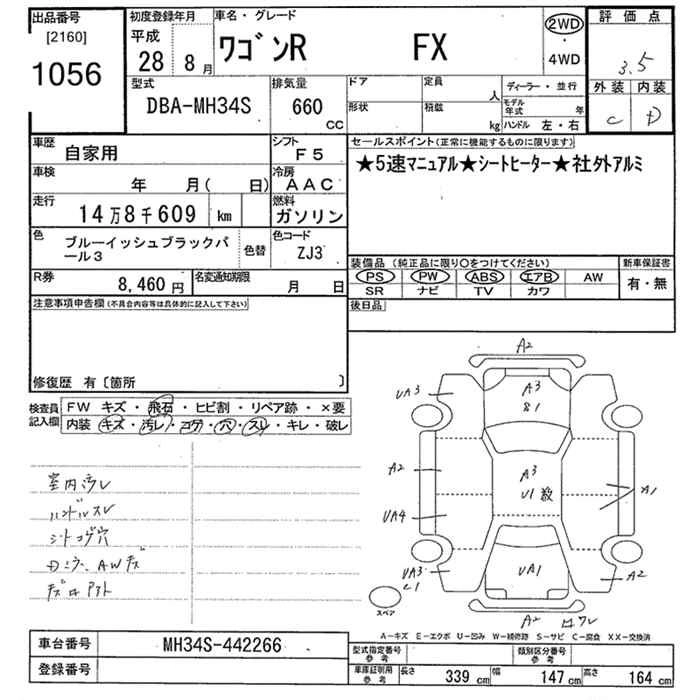 出品番号
[2160]
1056
初度登録年月
平成
28 8月
車名・グレード
ワゴンR FX
2WD
・
4WD
評価点
3.5
外装 内装
C D
型式
DBA-MH34S
排気量
660
CC
ドア
形状
定員
人
積載
kg
ディーラー・並行
モデル年式 年
ハンドル 左・右
車歴
自家用
シフト
F5
車検
年 月( 日)
冷房
AAC
走行
14万8千609 km
燃料
ガソリン
色
ブルーイッシュブラックパ
ール3
色替
色コード
ZJ3
R券
8,460 円
名変通知期限
月 日
セールスポイント(正常に機能するものに限ります)
★5速マニュアル★シートヒーター★社外アルミ
装備品 (純正品に限り○をつけてください)
PS PW ABS エアB AW
SR ナビ TV カワ
新車保証書
有・無
後日品
注意事項申告欄(不具合内容等は具体的に記入して下さい)
修復歴 有〔箇所 〕
検査員
記入欄
FW キズ・飛石・ヒビ割・リペア跡・×要
内装 キズ・汚レ・コゲ・穴・スレ・キレ・破レ
室内汚レ
ハンドルスレ
シートコゲ穴
AWキズ
A2
UA3
A3
81
A2
A3
U1
A1
UA4
UA3
C1
UA1
A2
A2 ワレ
スペア
A-キズ E-エクボ U-凹み W-補修跡 S-サビ C-腐食 XX-交換済
車台番号
MH34S-442266
登録番号
型式指定番号
参考
類別区分番号
参考
車庫証明用
参考
長さ 339 cm
幅 147 cm
高さ 164 cm